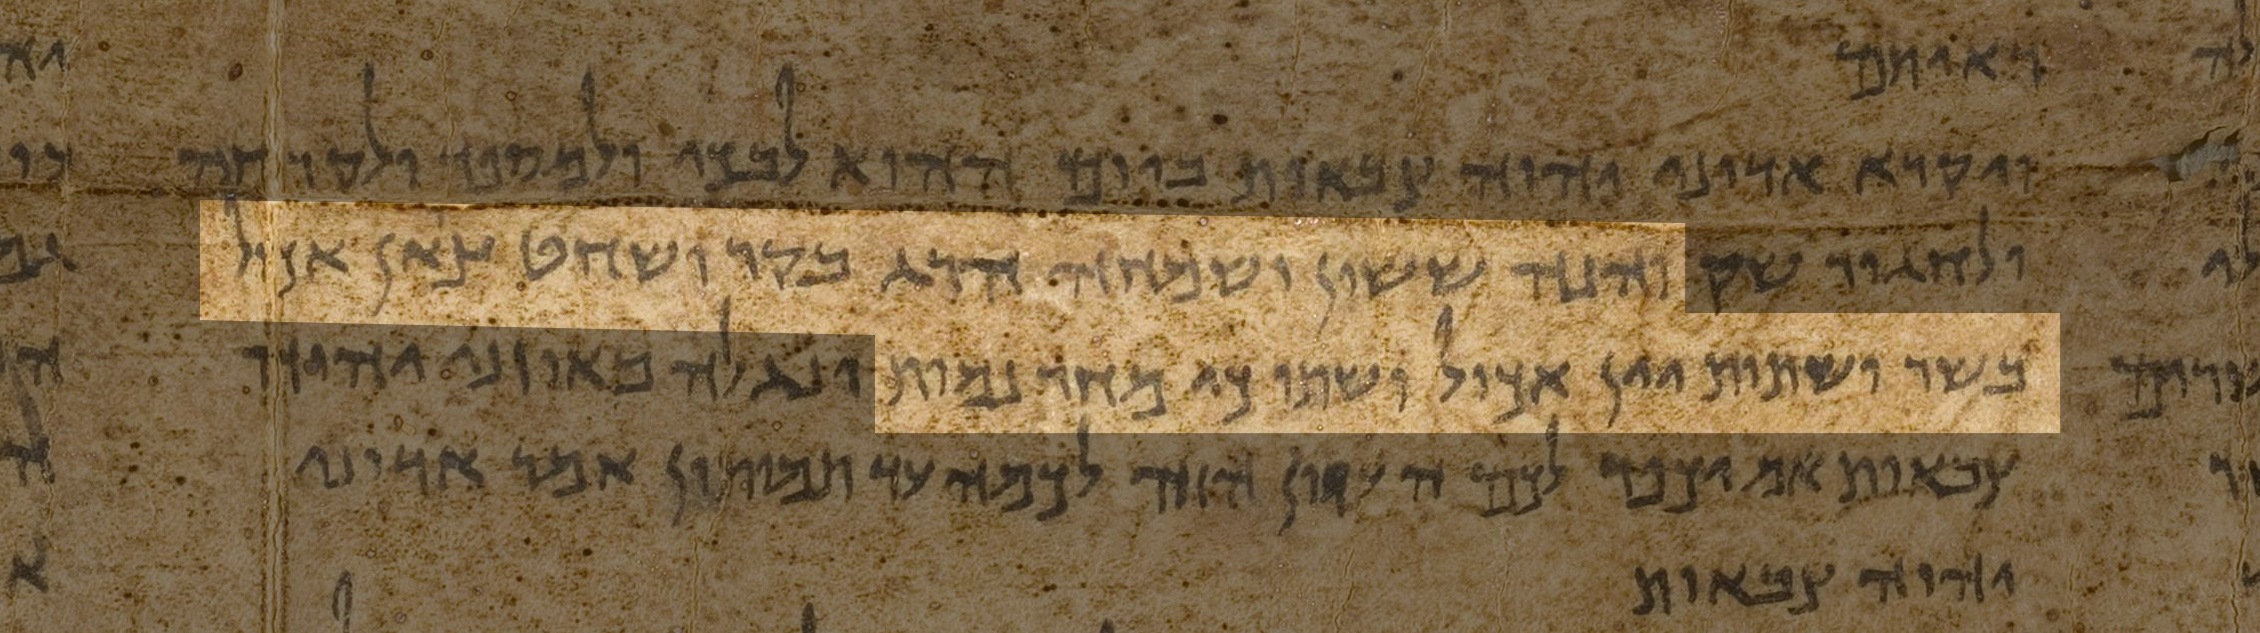 ראיתם
ויקרא אדוני יהוה צבאות ביום ההוא לבכי ולמספד ולקרחה
ולחגור שק והנה ששון ושמחה הרג בקר ושחט צאן אכול
בשר ושתות יין אכול ושתו כי מחר נמות ונגלה באוזני יהוה
צבאות אמ יכפר לכם העוון הזה לכמה עד תמותון אמר אדוני
יהוה צבאות